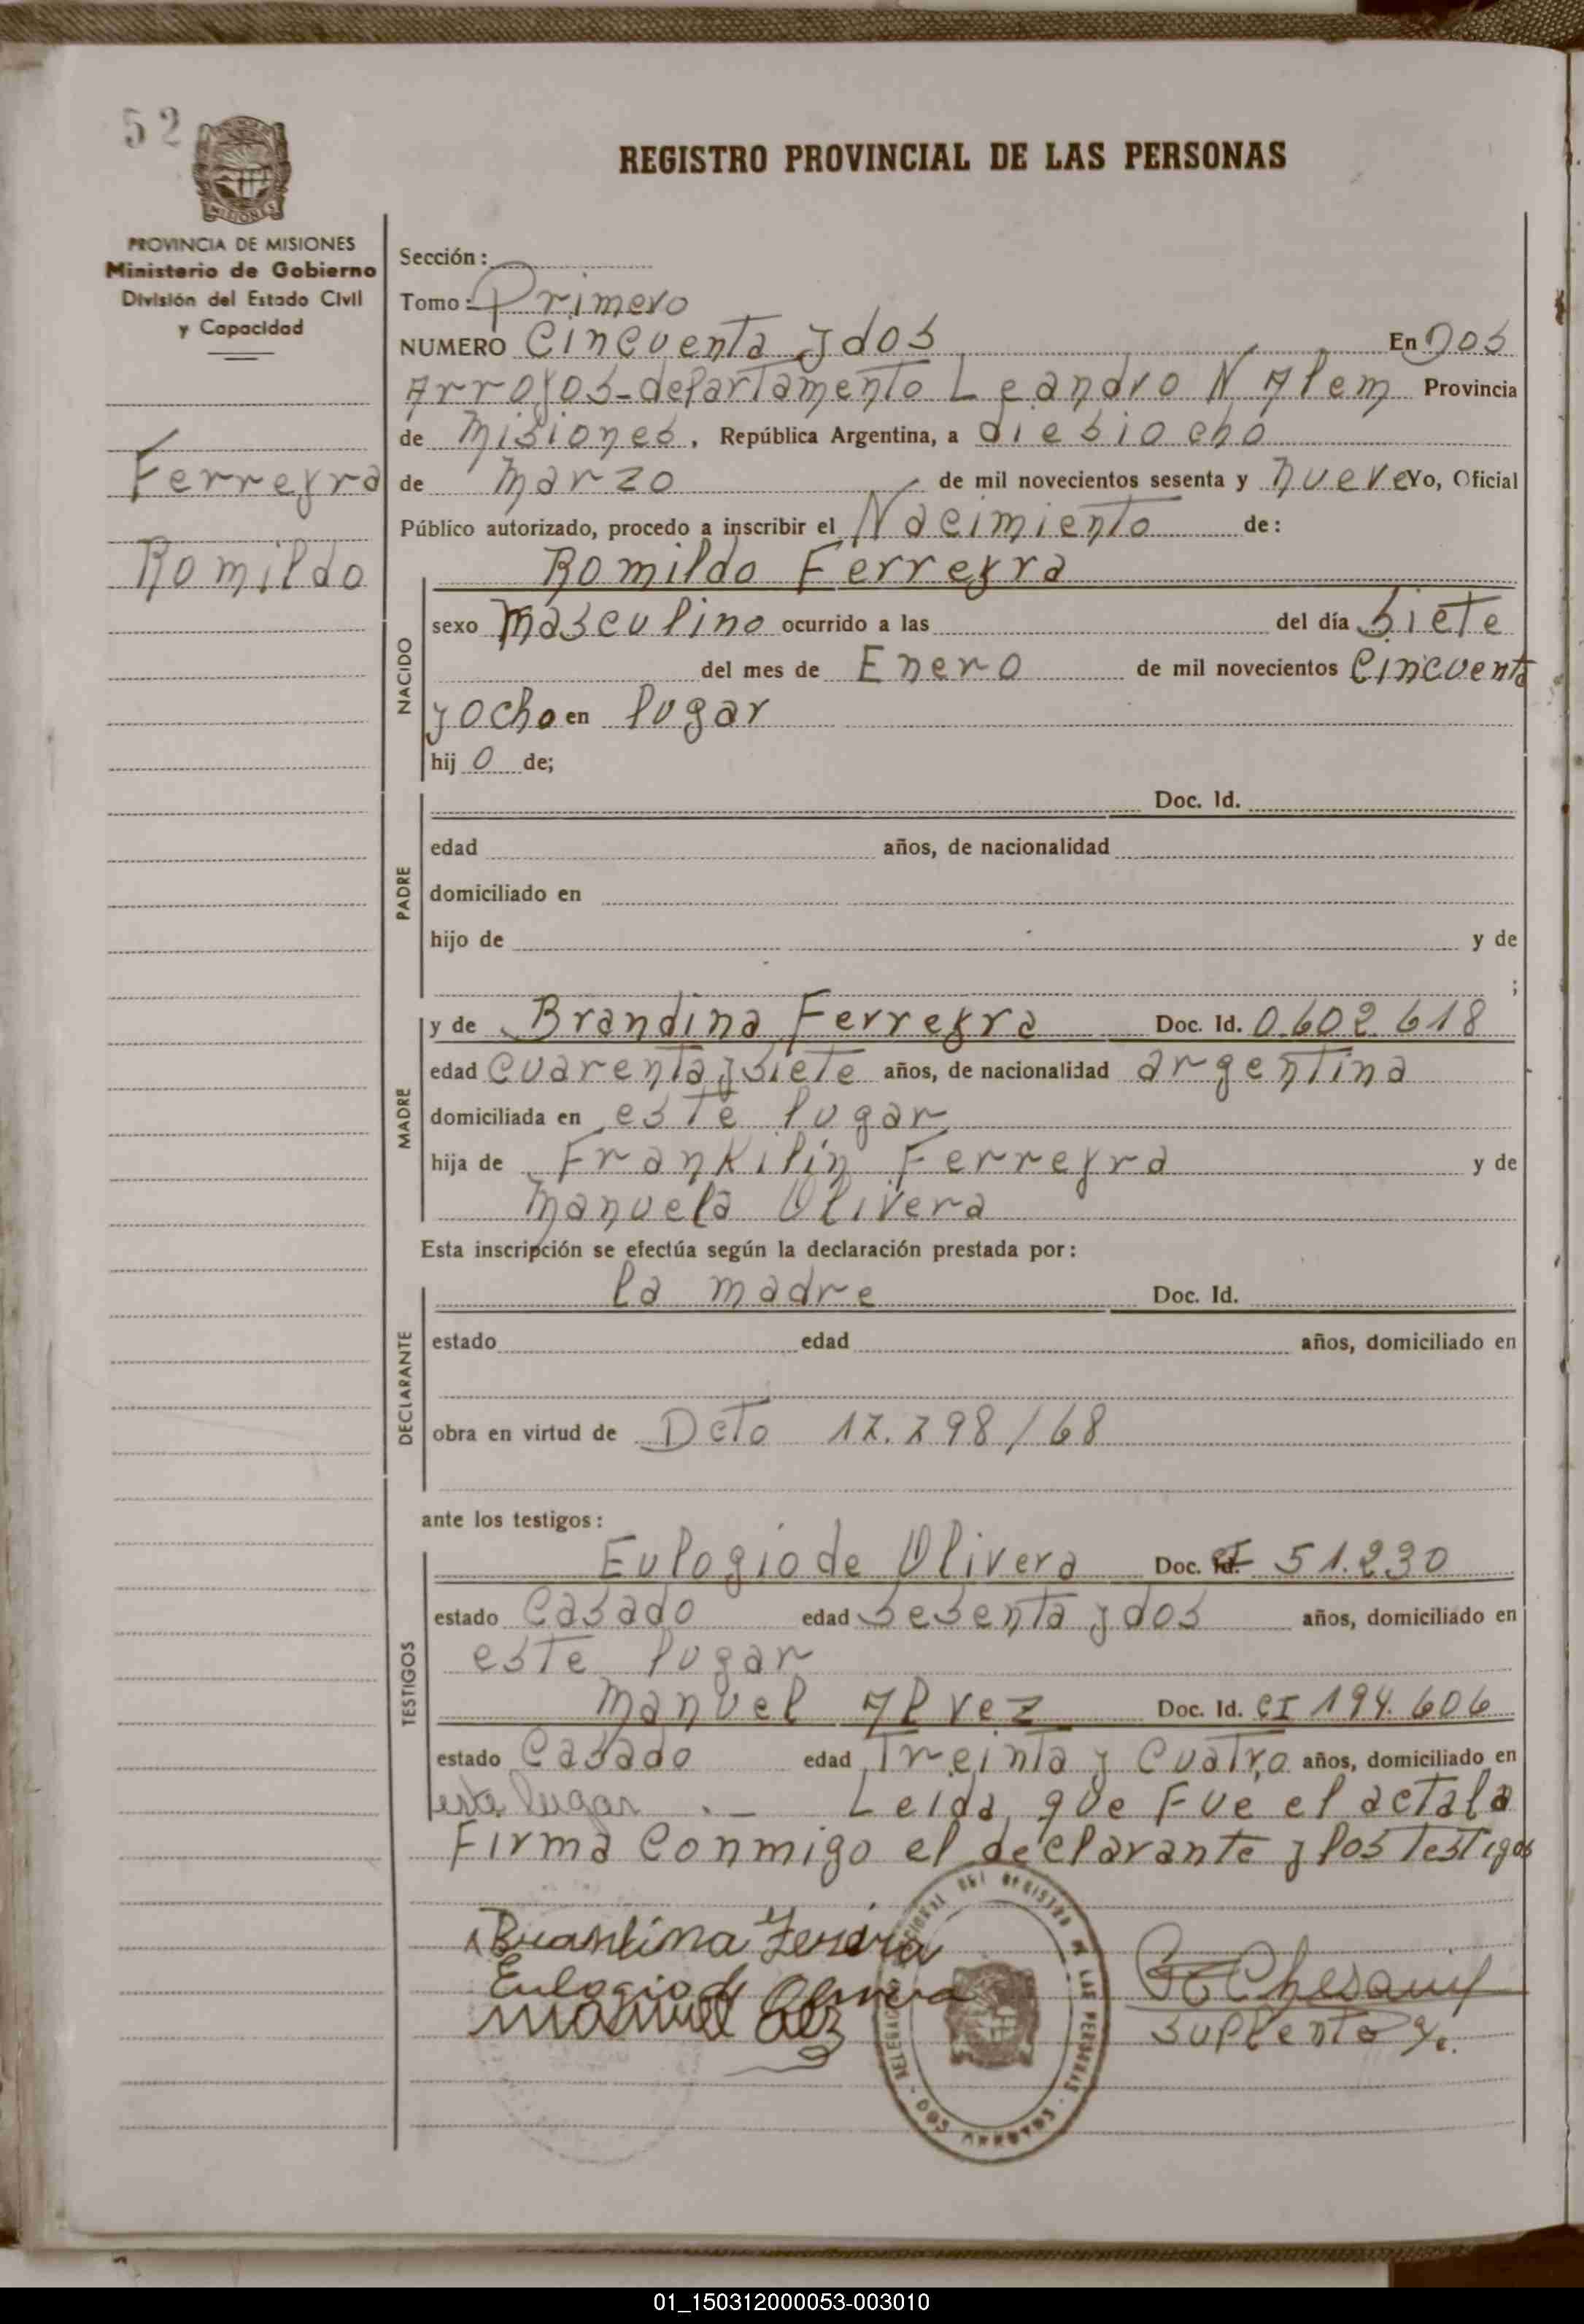 52
REGISTRO PROVINCIAL DE LAS PERSONAS
MISIONES
PROVINCIA DE MISIONES
Ministerio de Gobierno
División del Estado Civil
y Capacidad
Ferreyra
Romildo
Sección:
Tomo: Primero
NUMERO Cincuenta y dos En Dos
Arroyos-departamento Leandro N Alem Provincia
de Misiones. República Argentina, a diesiocho
de Marzo de mil novecientos sesenta y nueve Yo, Oficial
Público autorizado, procedo a inscribir el Nacimiento de:
Romildo Ferreyra
NACIDO
sexo Masculino ocurrido a las del día siete
del mes de Enero de mil novecientos Cincuenta
y ocho en lugar
hij o de;
PADRE
Doc. Id.
edad años, de nacionalidad
domiciliado en
hijo de y de
;
MADRE
y de Brandina Ferreyra Doc. Id. 0.602.618
edad cuarenta y siete años, de nacionalidad argentina
domiciliada en este lugar
hija de Frankilin Ferreyra y de
Manuela Olivera
Esta inscripción se efectúa según la declaración prestada por:
DECLARANTE
la madre Doc. Id.
estado edad años, domiciliado en
obra en virtud de Dcto 17.798/68
ante los testigos:
TESTIGOS
Eulogio de Olivera Doc. Id. 51.230
estado Casado edad sesenta y dos años, domiciliado en
este lugar
Manuel Alvez Doc. Id. CI 194.606
estado Casado edad Treinta y Cuatro años, domiciliado en
este lugar .- Leida que Fue el acta la
Firma Conmigo el declarante y los Testigos
Eulogio d Olivera
Manuel
Suplente
DOS ARROYOS
01_150312000053-003010